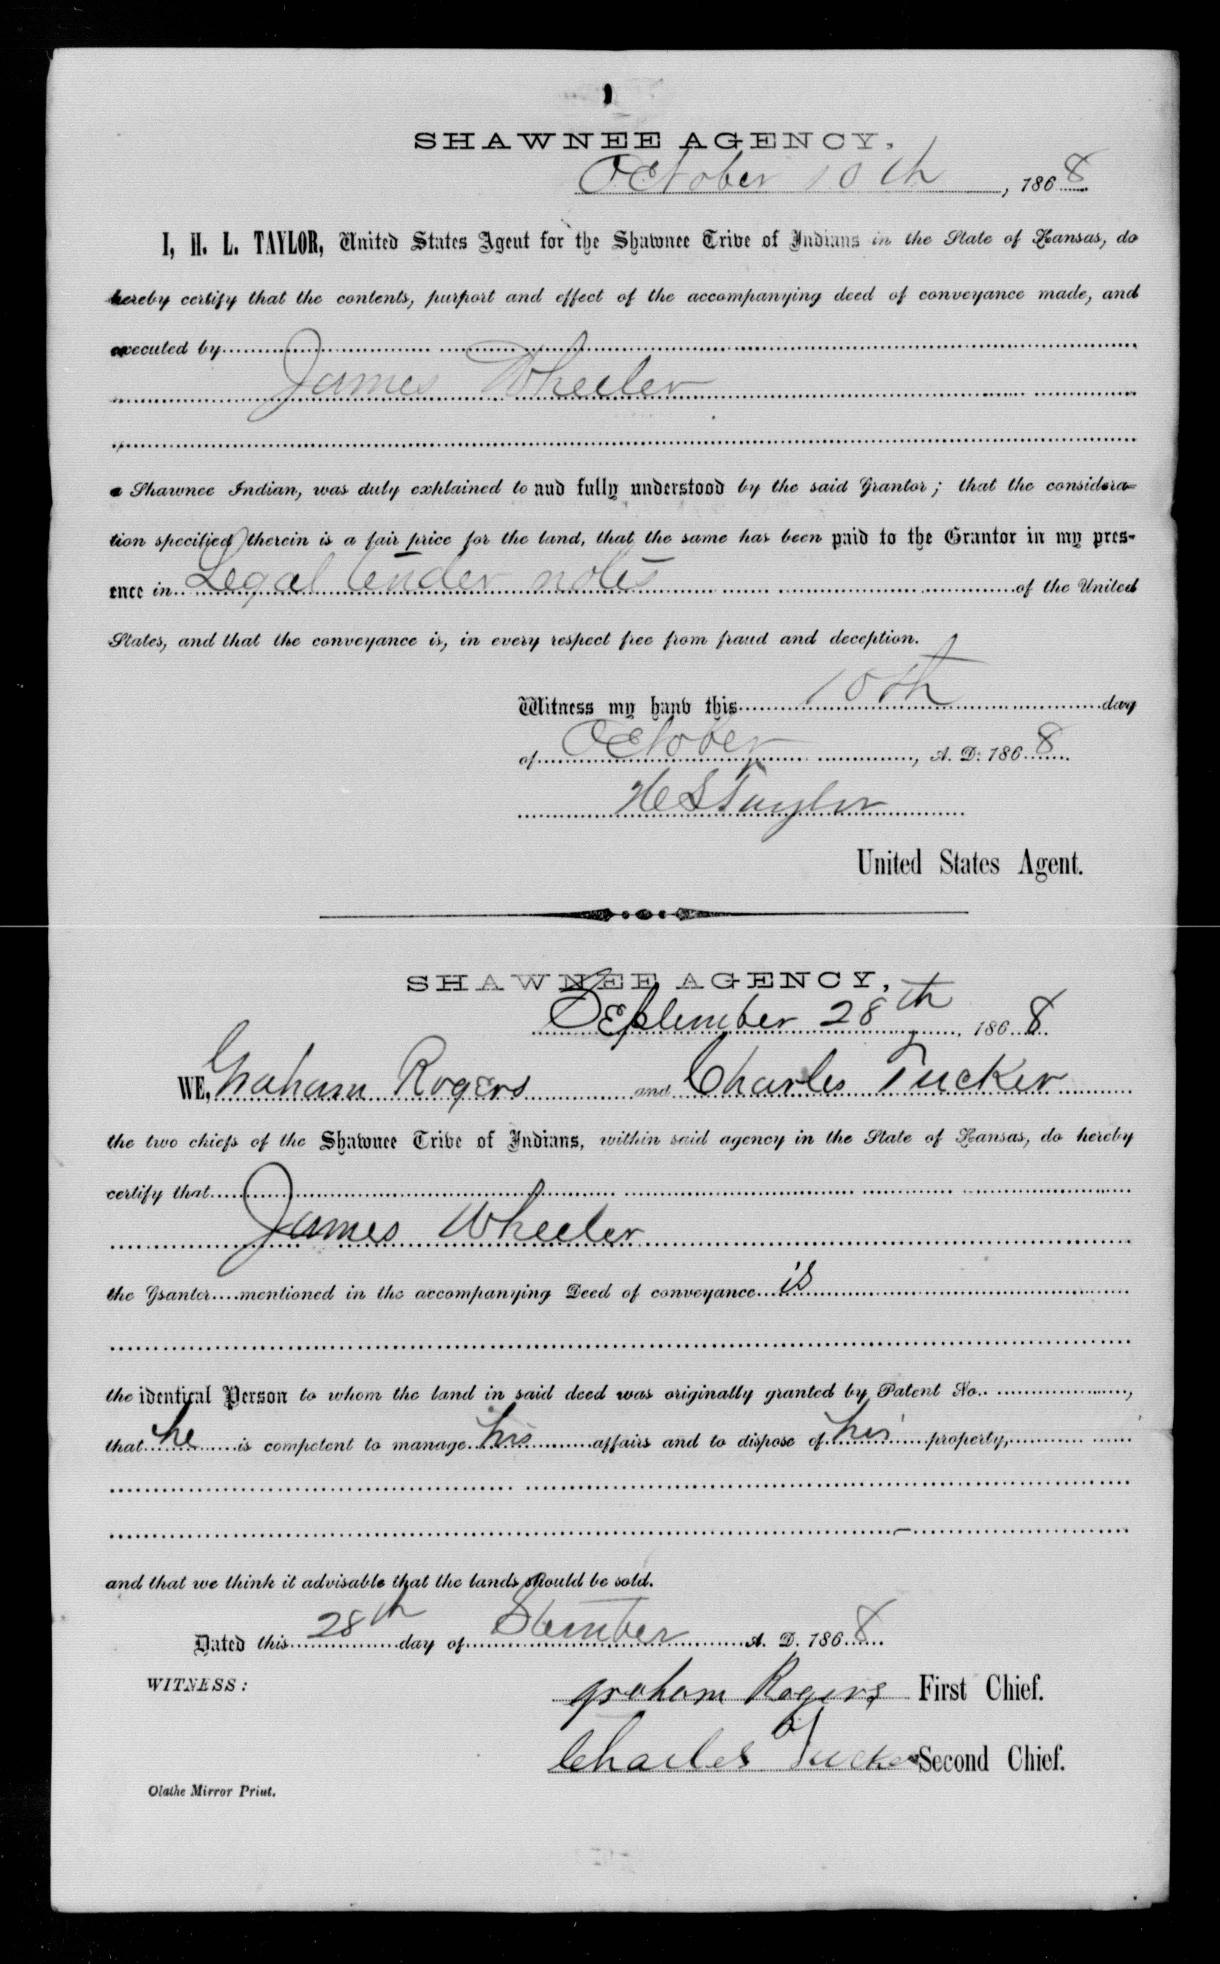 SHAWNEE AGENCY,
October 10th, 1868
I, H. L. TAYLOR, United States Agent for the Shawnee Tribe of Indians in the State of Kansas, do
hereby certify that the contents, purport and effect of the accompanying deed of conveyance made, and
executed by
James Wheeler
a Shawnee Indian, was duly explained to and fully understood by the said Grantor; that the considera-
tion specified therein is a fair price for the land, that the same has been paid to the Grantor in my pres-
ence in Legal tender notes of the United
States, and that the conveyance is, in every respect free from fraud and deception.
Witness my hand this 10th day
of October, A. D. 1868
H L Taylor
United States Agent.
SHAWNEE AGENCY,
September 28th, 1868
WE, Graham Rogers and Charles Tucker
the two chiefs of the Shawnee Tribe of Indians, within said agency in the State of Kansas, do hereby
certify that
James Wheeler
the Grantor mentioned in the accompanying Deed of conveyance is
the identical Person to whom the land in said deed was originally granted by Patent No. ,
that he is competent to manage his affairs and to dispose of his property,
and that we think it advisable that the lands should be sold.
Dated this 28th day of Stember A. D. 1868
WITNESS:
graham Rogers First Chief.
Charles Tucker Second Chief.
Olathe Mirror Print.